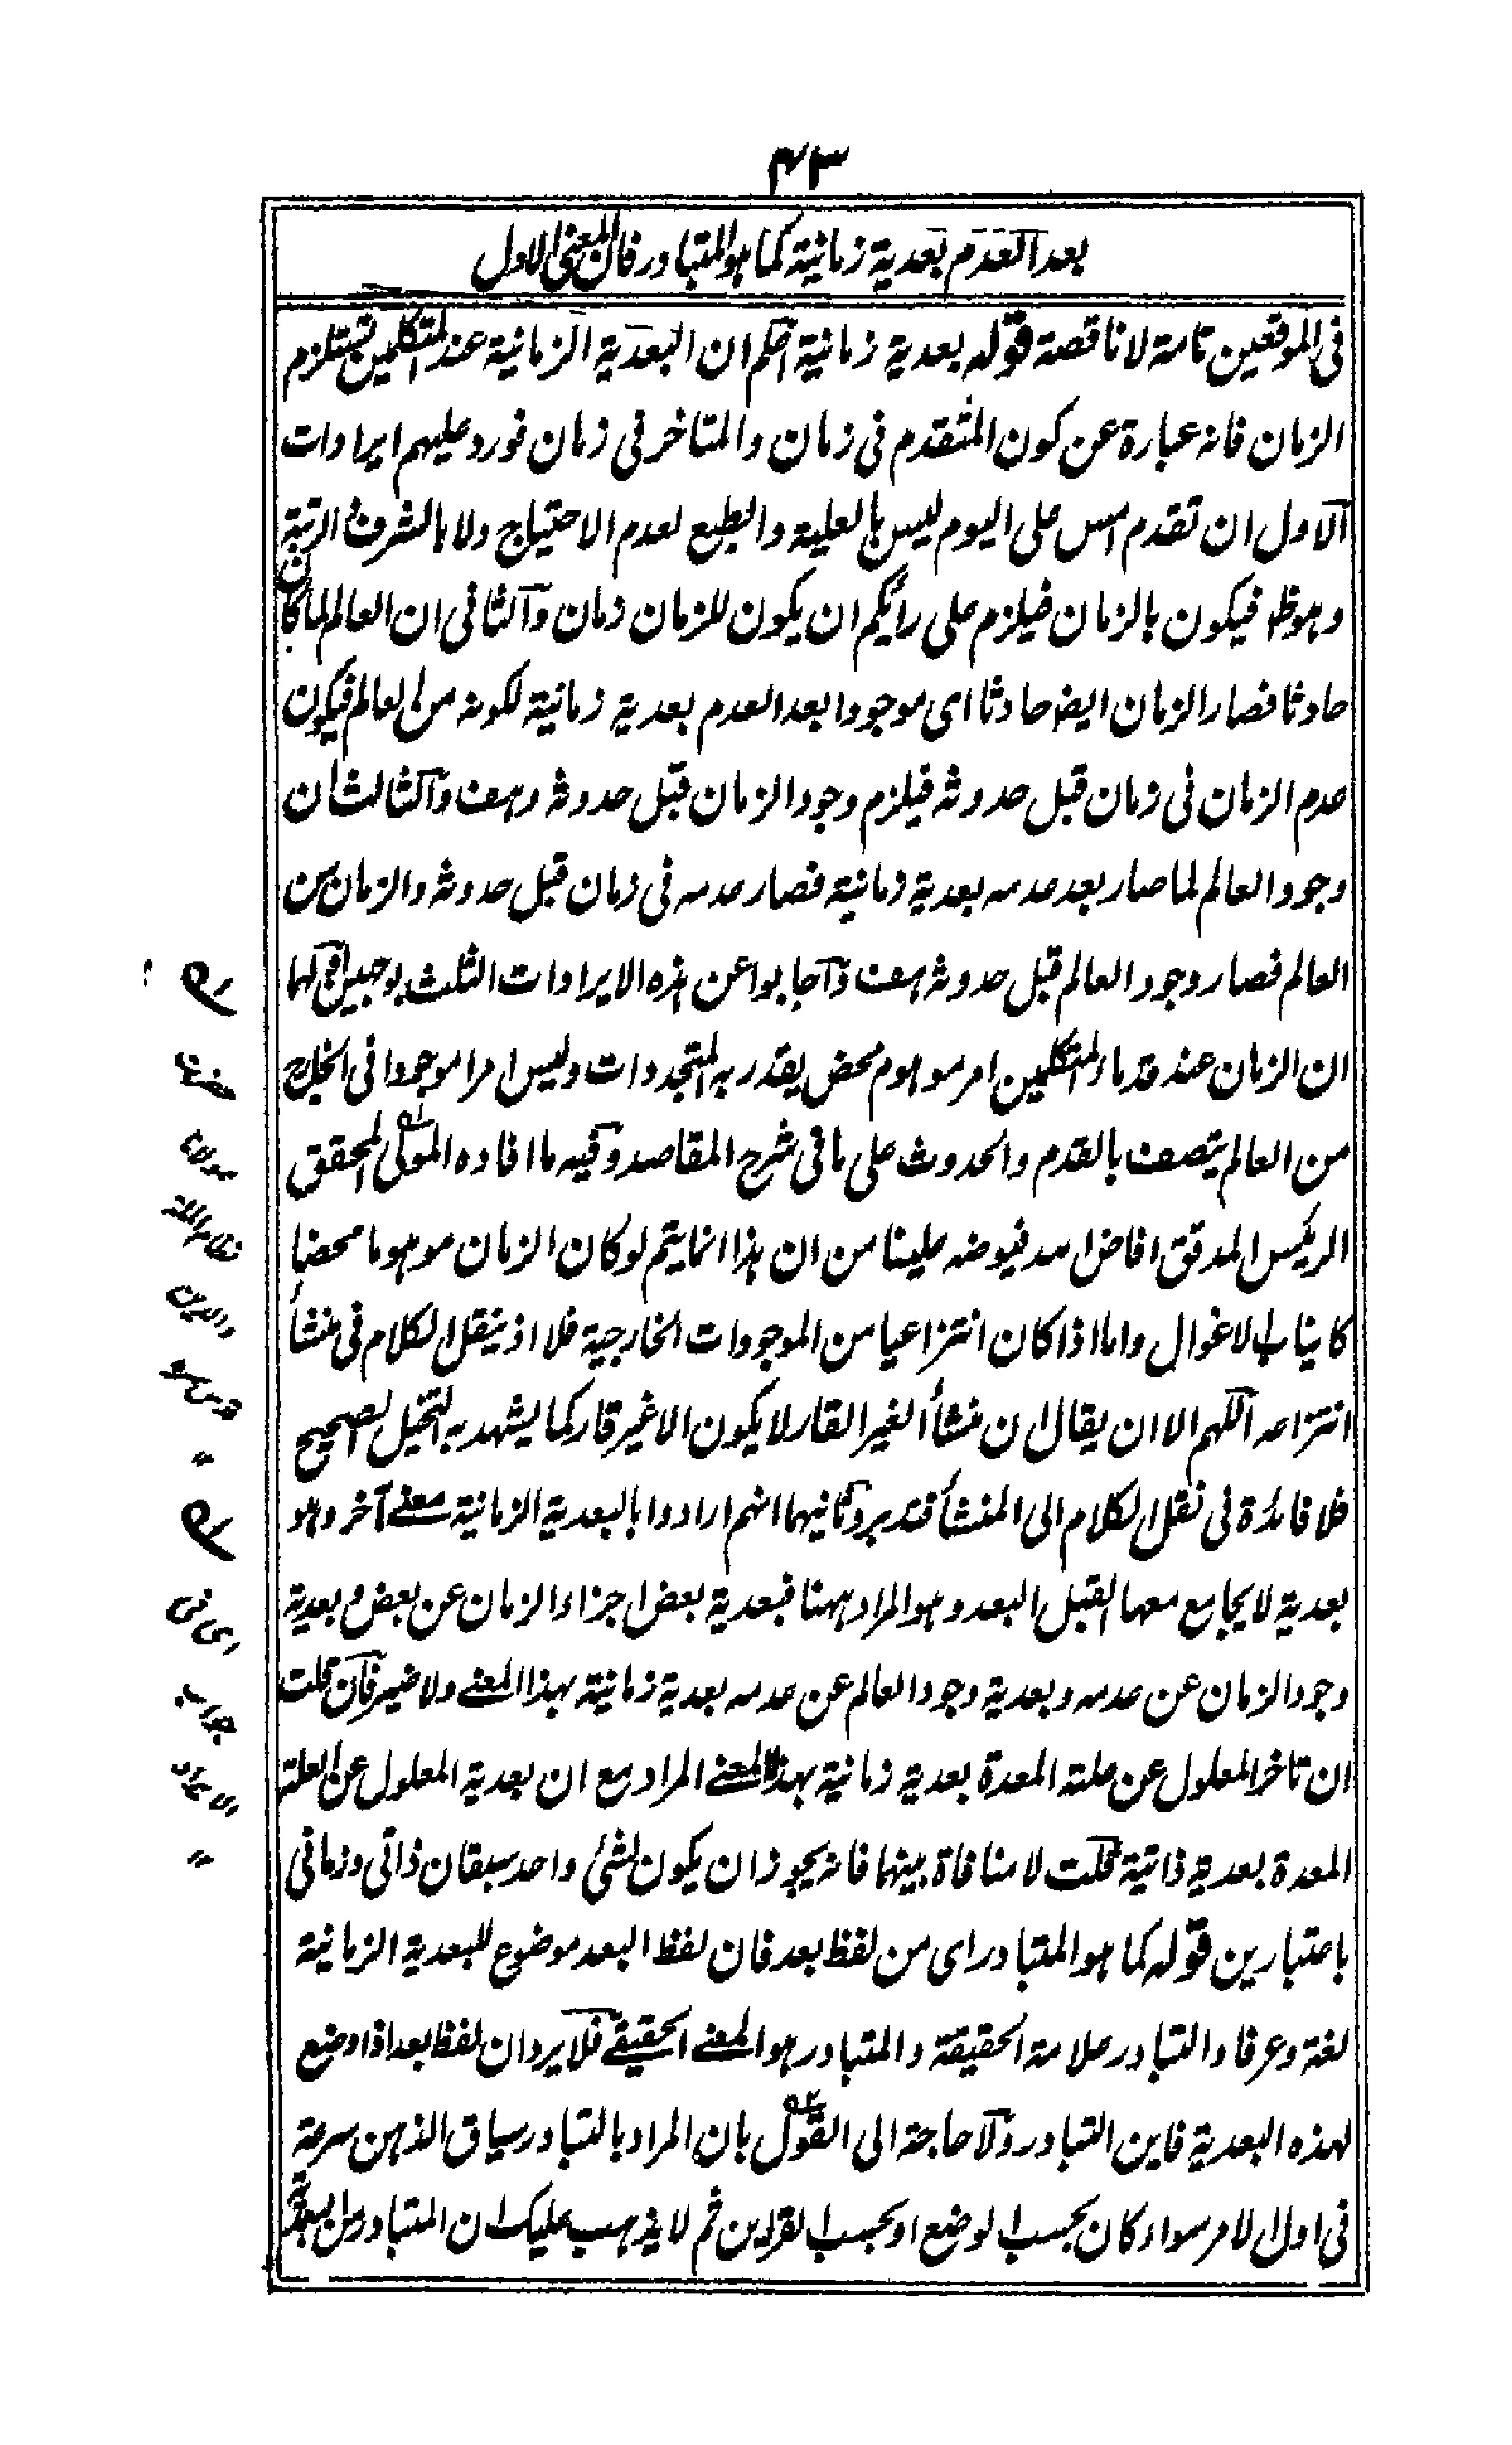 ٤٣
بعد العدم بعدية زمانية كما هو المتبادر فان المعنى الاول
فى الموقعين تامة لا ناقصة قوله بعدية زمانية اعلم ان البعدية الزمانية عند المتكلمين تستلزم
الزمان فانه عبارة عن كون المتقدم فى زمان والمتاخر فى زمان فورد عليهم ايرادات
الاول ان تقدم امس على اليوم ليس بالعلية والطبع لعدم الاحتياج ولا بالشرف والرتبة
وهو ظ فيكون بالزمان فيلزم على رائكم ان يكون للزمان زمان والثانى ان العالم لما كان
حادثا فصار الزمان ايضا حادثا اى موجودا بعد العدم بعدية زمانية لكونه من العالم فيكون
عدم الزمان فى زمان قبل حدوثه فيلزم وجود الزمان قبل حدوثه وهف والثالث ان
وجود العالم لما صار بعد عدمه بعدية زمانية فصار عدمه فى زمان قبل حدوثه والزمان من
العالم فصار وجود العالم قبل حدوثه هف واجابوا عن هذه الايرادات الثلث بوجهين اولهما
ان الزمان عند قدماء المتكلمين امر موهوم محض يقدر به المتجددات وليس امرا موجودا فى الخارج
من العالم يتصف بالقدم والحدوث على ما فى شرح المقاصد وفيه ما افاده المولى المحقق
الرئيس المدقق افاض الله فيوضه علينا من ان هذا انما يتم لو كان الزمان موهوما محضا
كانياب الاغوال واما اذا كان انتزاعيا من الموجودات الخارجية فلا اذ ينقل الكلام فى منشأ
انتزاعه اللهم الا ان يقال ان منشأ الغير القار لا يكون الا غير قار كما يشهد به التخيل الصحيح
فلا فائدة فى نقل الكلام الى المنشأ فتدبر وثانيهما انهم ارادوا بالبعدية الزمانية معنى آخر وهو
بعدية لا يجامع معها القبل البعد وهو المراد ههنا فبعدية بعض اجزاء الزمان عن بعض وبعدية
وجود الزمان عن عدمه وبعدية وجود العالم عن عدمه بعدية زمانية بهذا المعنى ولا ضير فان قلت
ان تاخر المعلول عن علته المعدة بعدية زمانية بهذا المعنى المراد مع ان بعدية المعلول عن العلة
المعدة بعدية ذاتية قلت لا منافاة بينهما فانه يجوز ان يكون لشئ واحد سبقان ذاتى وزمانى
باعتبارين قوله كما هو المتبادر اى من لفظ بعد فان لفظ البعد موضوع للبعدية الزمانية
لغة وعرفا والتبادر علامة الحقيقة والمتبادر هو المعنى الحقيقى فلا يرد ان لفظ بعد اذا وضع
لهذه البعدية فاين التبادر ولا حاجة الى القول بان المراد بالتبادر سياق الذهن سرعة
فى اول الامر سواء كان بحسب الوضع او بحسب القراين ثم لا يذهب عليك ان المتبادر من
حضرت
مولانا
نظام الملة
والدين
قدس سره
اى فى
جواب
الايراد